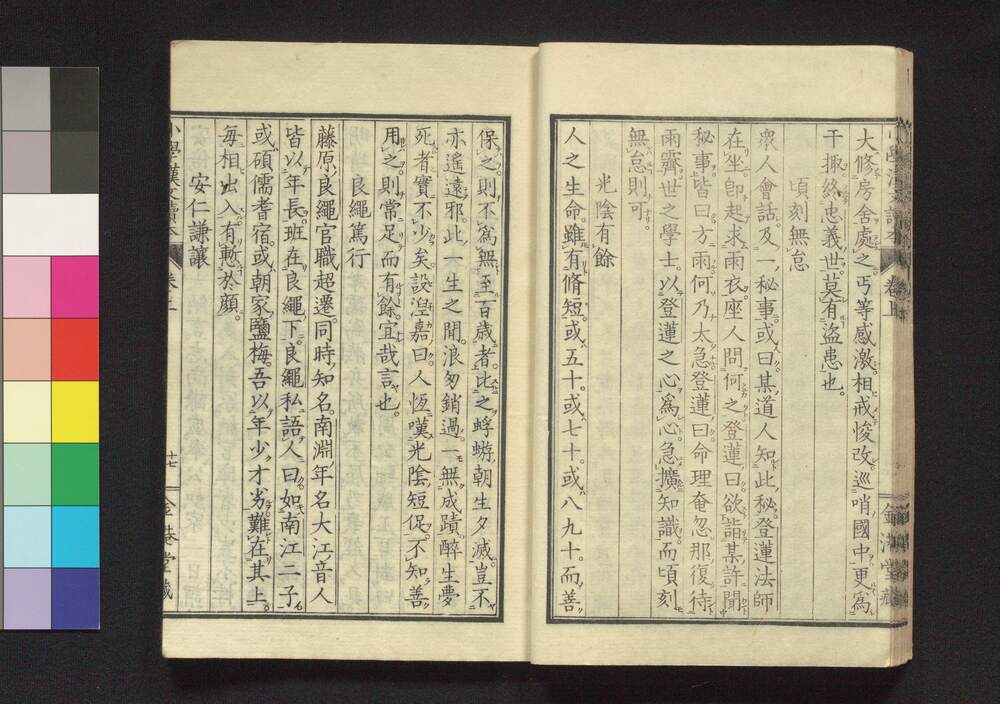 大修房舍處之丐等感激相戒悛改巡哨國中更爲
干掫終忠義世莫有盜患也。
頃刻無怠
衆人會話及一秘事。或曰某道人知此秘登蓮法師
在坐卽起求雨衣座人問何之登蓮曰欲詣某許聞
秘事皆曰方雨何乃太急登蓮曰命理奄忽那復待
雨霽世之學士以登蓮之心爲心急擴知識而頃刻
無怠則可。
光陰有餘
人之生命雖有脩短或五十。或七十。或八九十。而善
保之則不爲無至百歲者比之蜉蝣朝生夕滅豈不
亦遙遠邪此一生之間浪匆銷過一無成蹟醉生夢
死者實不少矣設湟嘉曰人恆嘆光陰短促不知善
用之則常足而有餘宜哉言也。
良繩篤行
藤原良繩官職超遷同時知名南淵年名大江音人
皆以年長班在良繩下良繩私語人曰如南江二子
或碩儒耆宿或朝家鹽梅吾以年少才劣難在其上。
每相出入有慙於顏。
安仁謙讓
小學漢文讀本 卷上 廿七 金港堂藏